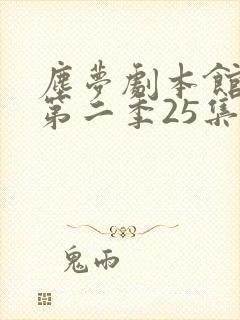 塵夢劇本館
第二季25集
鬼雨